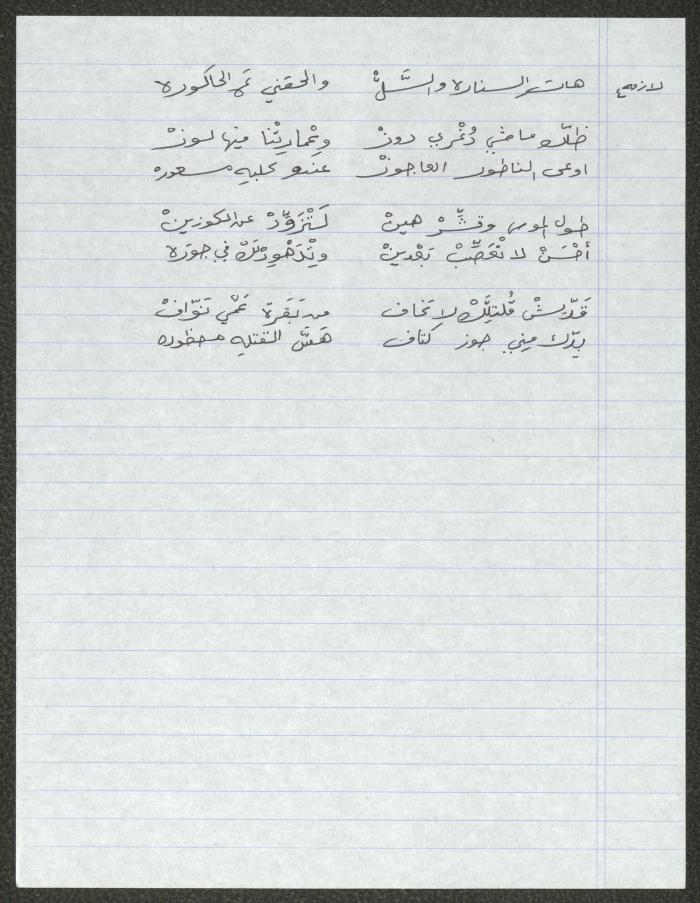 لازمة هات السنارة والسَّلّْ والحقني عَ الحاكورة
ظلّك ماشي دُغْري دوزْ وعْمارِتْنا فيها لوزْ
اوعى الناطور العاجوزْ عندو كلبه مسعورة
طول الموس وقَشِّرْ هينْ لَتْزَوِّدْ عن الكوزينْ
أحْسَنْ لا تْعَصِّبْ بَعْدينْ وتْدَهْوِرْلَكْ في جورَة
قَدّيشْ قُلتِلَّكْ لا تخاف من بَقَرة عَمّي نَوّافْ
بدّك مِنّي جوز كتاف هَسَّ القتله محظوره